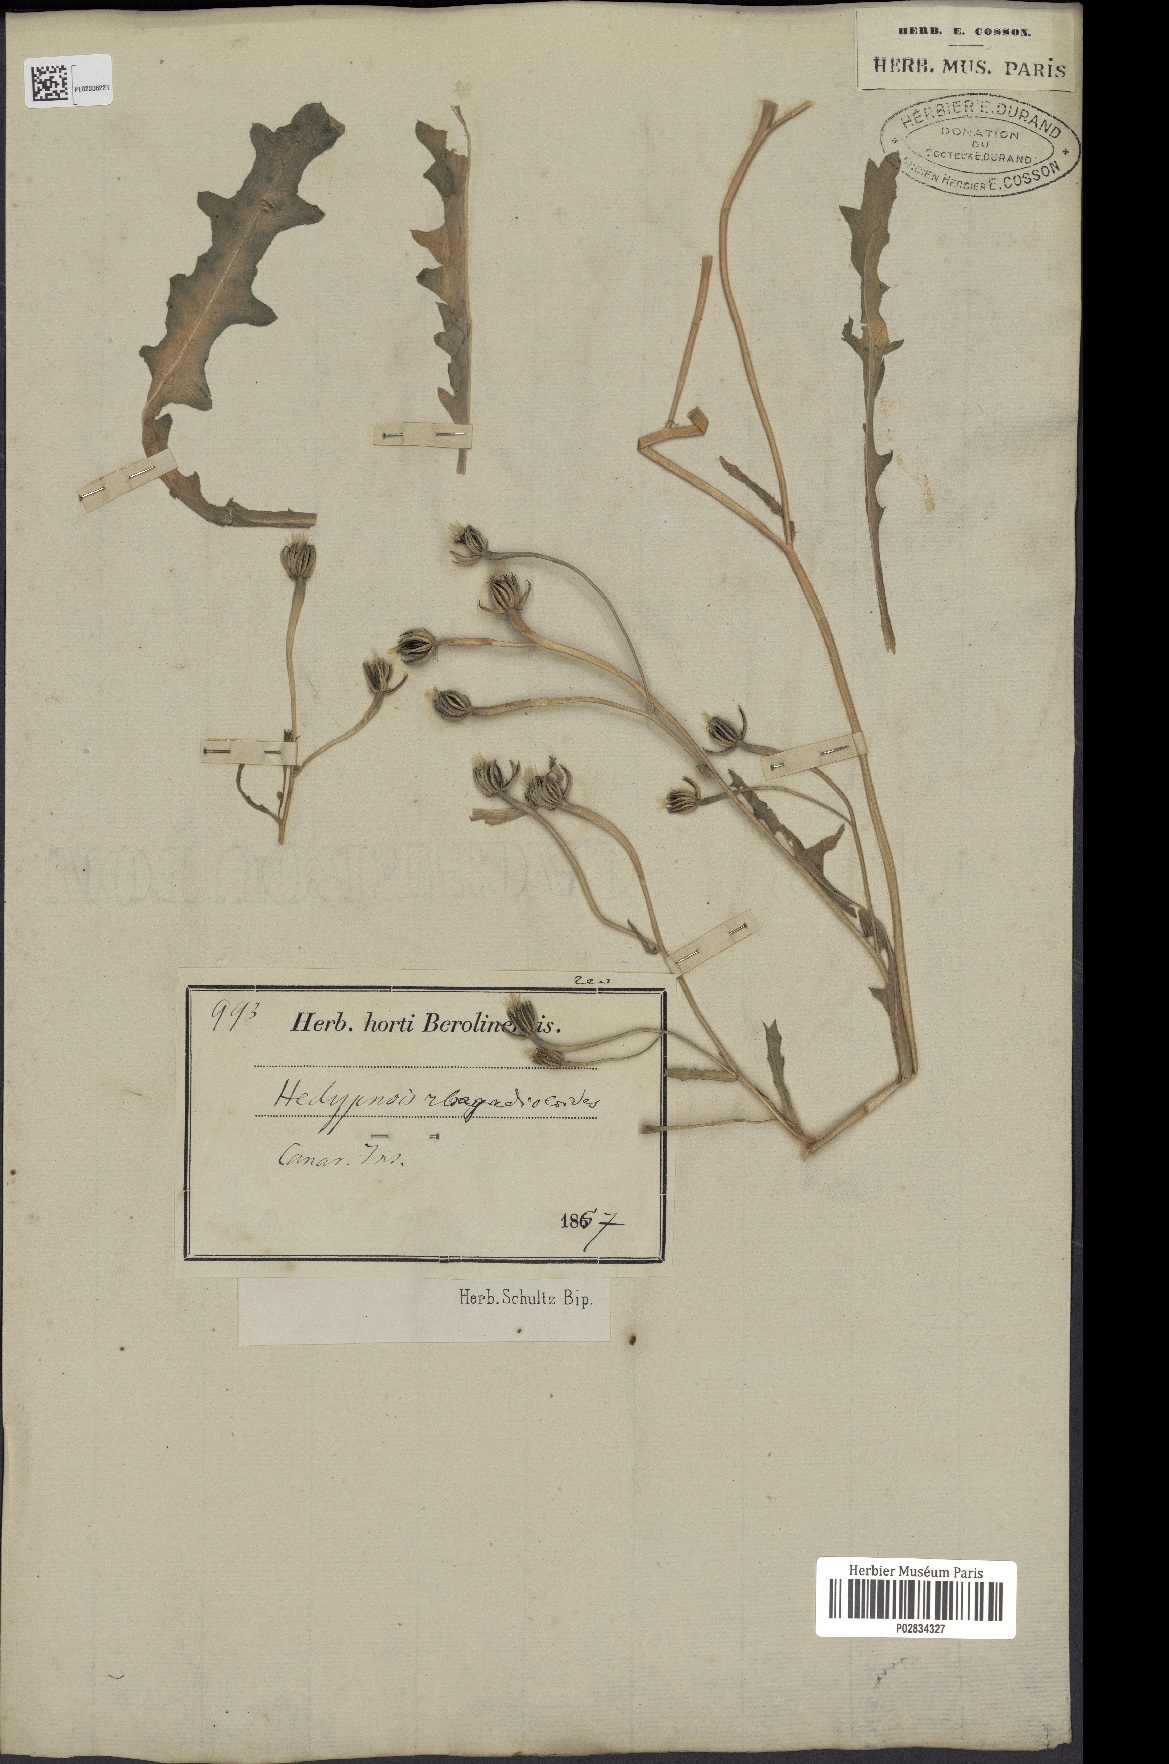 HERB. E. COSSON.
HERB. MUS. PARIS
HERBIER E. DURAND
DONATION
DU
DOCTEUR E. DURAND
ANCIEN HERBIER E. COSSON
993
Herb. horti Berolinensis.
Hedypnois rhagadioloides
Canar. Ins.
1867
Herb. Schultz Bip.
Herbier Muséum Paris
P02834327